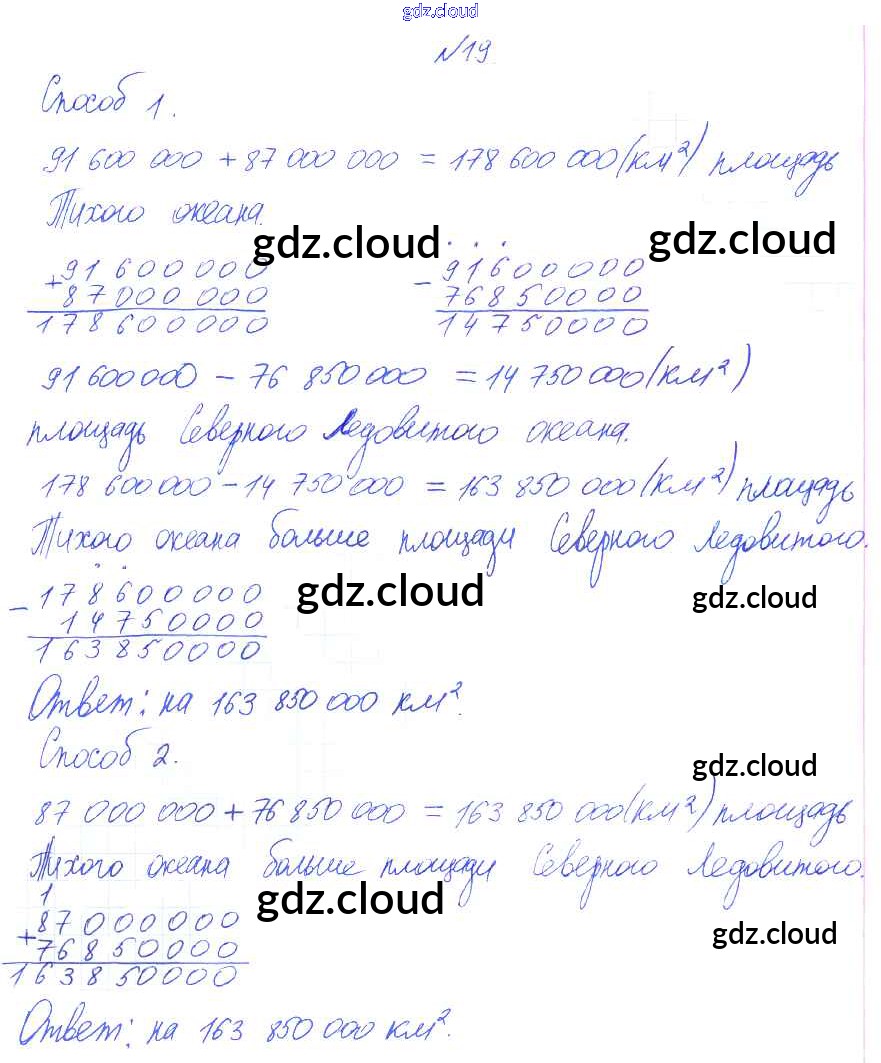 gdz.cloud
№19
Способ 1.
91 600 000 + 87 000 000 = 178 600 000 (км²) площадь
Тихого океана.
gdz.cloud
gdz.cloud
+91 600000
87000 000
178600000
-91600000
76850000
14750000
91 600 000 - 76 850 000 = 14 750 000 (км²)
площадь Северного Ледовитого океана.
178 600 000 - 14 750 000 = 163 850 000 (км²) площадь
Тихого океана больше площади Северного Ледовитого.
-178600000
14750000
163850000
gdz.cloud
gdz.cloud
Ответ: на 163 850 000 км².
Способ 2.
gdz.cloud
87 000 000 + 76 850 000 = 163 850 000 (км²) площадь
Тихого океана больше площади Северного Ледовитого.
1
+87000000
76850000
163850000
gdz.cloud
gdz.cloud
Ответ: на 163 850 000 км².